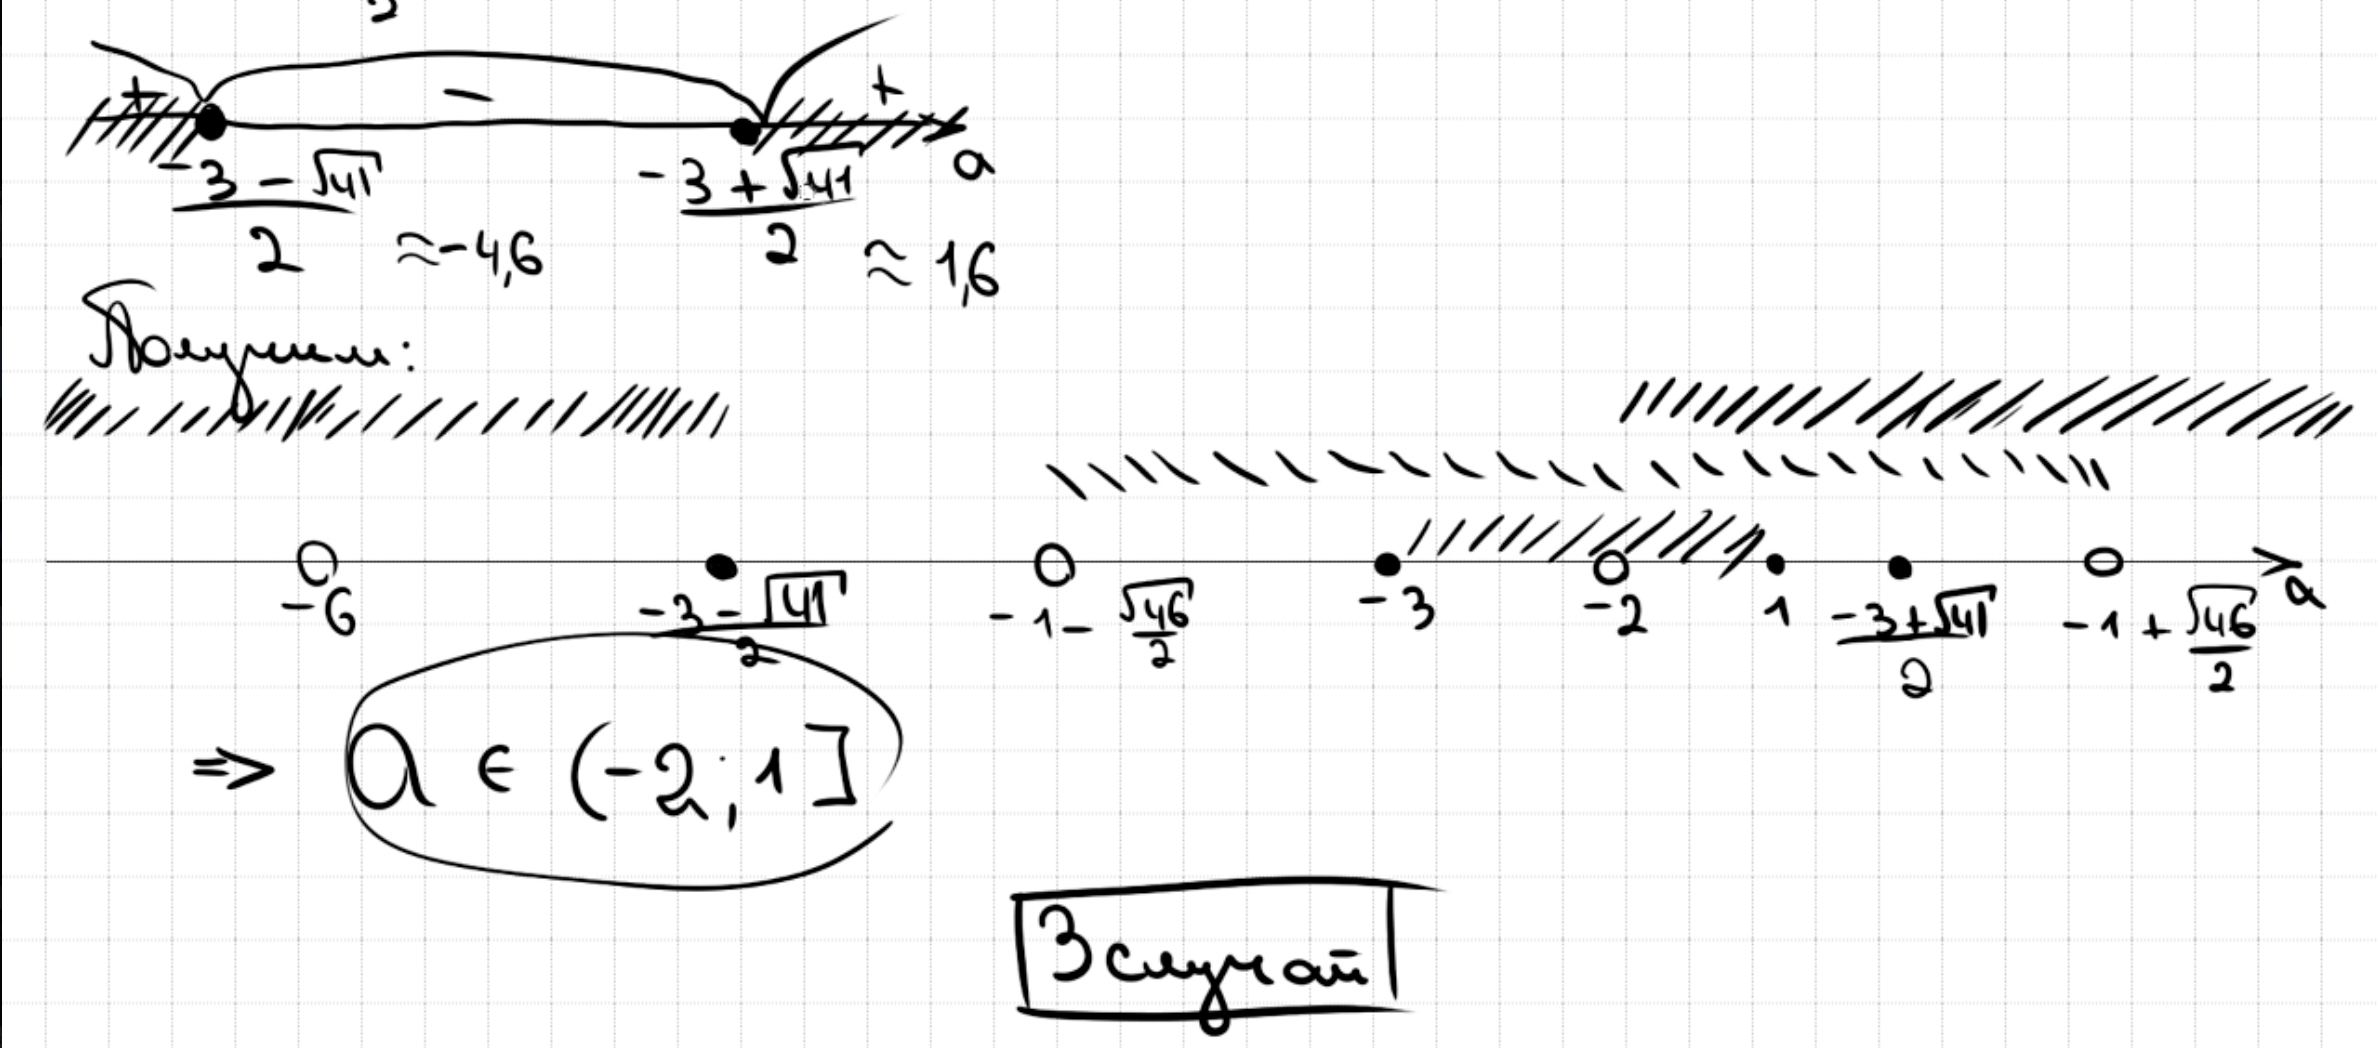 2
+ − +
-3 - √41 / 2 ≈ -4,6   -3 + √41 / 2 ≈ 1,6   a
Получим:
-6   -3 - √41 / 2   -1 - √46 / 2   -3   -2   1   -3 + √41 / 2   -1 + √46 / 2   a
=> a ∈ (-2; 1]
3 случай